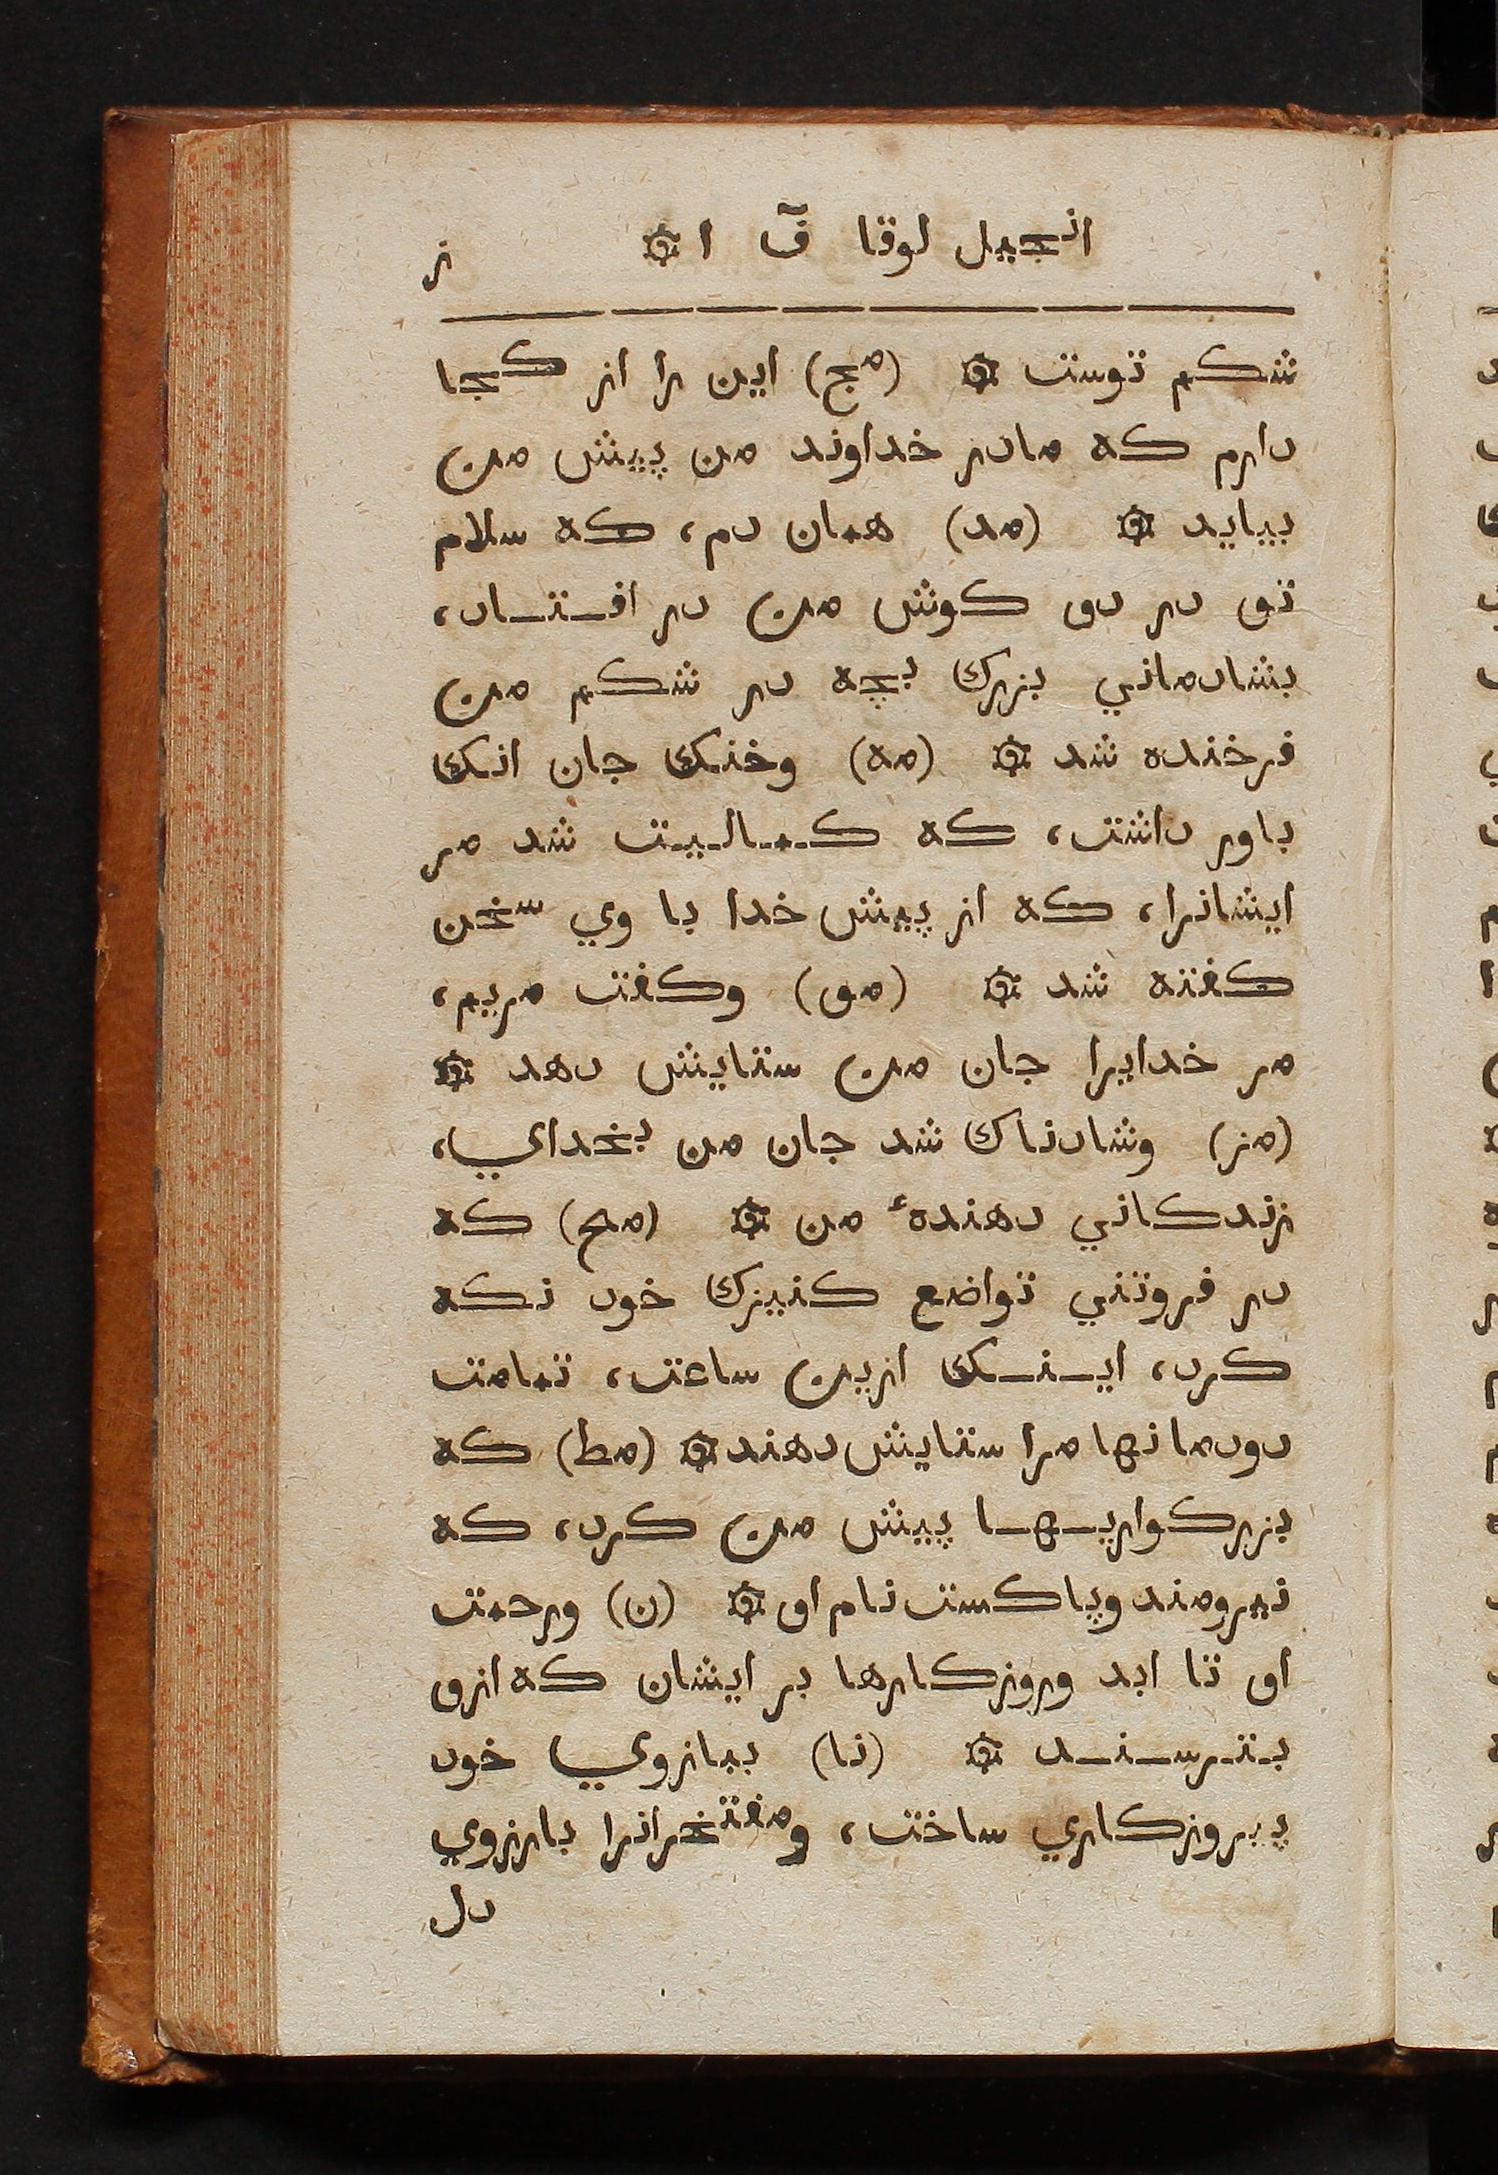 انجيل لوقا قۤ ا ۞
ز
شكم توست ۞ (مج) اين را از كجا
دارم كه مادر خداوند من پيش من
بيايد ۞ (مد) همان دم، كه سلام
تو در دو كوش من در افتاد،
بشادماني بزرك بچه در شكم من
فرخنده شد ۞ (مه) وخنك جان انك
باور داشت، كه كماليت شد مر
ايشانرا، كه از پيش خدا با وي سخن
كفته شد ۞ (مو) وكفت مريم،
مر خدايرا جان من ستايش دهد ۞
(مز) وشادناك شد جان من بخداي،
زندكاني دهندهٔ من ۞ (مح) كه
در فروتني تواضع كنيزك خود نكه
كرد، اينك ازين ساعت، تمامت
دودمانها مرا ستايش دهند ۞ (مط) كه
بزركواريها پيش من كرد، كه
نيرومند وپاكست نام او ۞ (ن) ورحمت
او تا ابد وروزكارها بر ايشان كه ازو
بترسند ۞ (نا) ببازوي خود
پيروزكاري ساخت، ومفتخرانرا بارزوي
دل